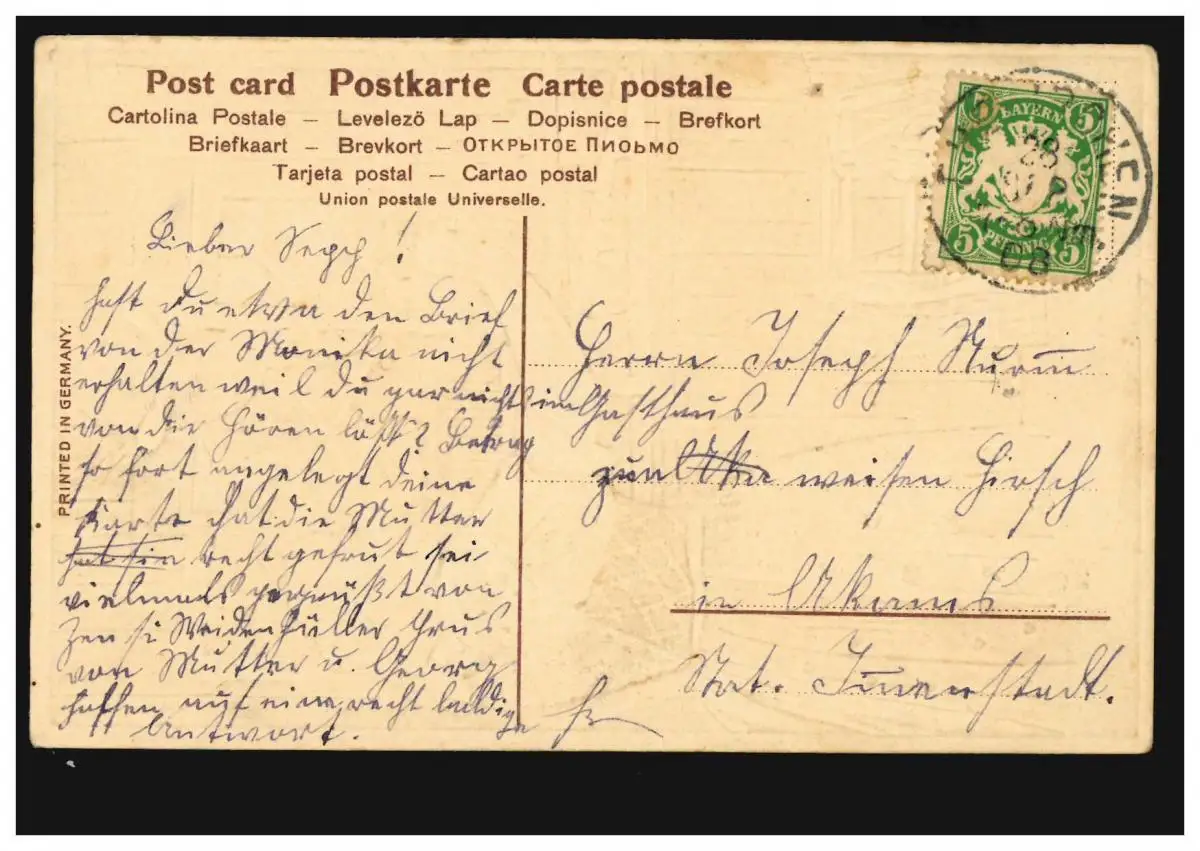 Post card Postkarte Carte postale
Cartolina Postale – Levelező Lap – Dopisnice – Brefkort
Briefkaart – Brevkort – ОТКРЫТОЕ ПИОЬМО
Tarjeta postal – Cartao postal
Union postale Universelle.
PRINTED IN GERMANY.
5 BAYERN 5
5 PFENNIG 5
28
08
Lieber Sepp!
hast du etwa den Brief
von der Monika nicht
erhalten weil du gar nichts
von dir hören läßt?
so fort angelegt deine
Karte hat die Mutter
recht gefrut sei
vielmals gegrüßt von
Grus
von Mutter u. Georg
hoffen auf eine recht baldige
Antwort.
Herrn Joseph Sturm
im Gasthaus
zum weisen Hirsch
in Akams
Stat. Immenstadt.